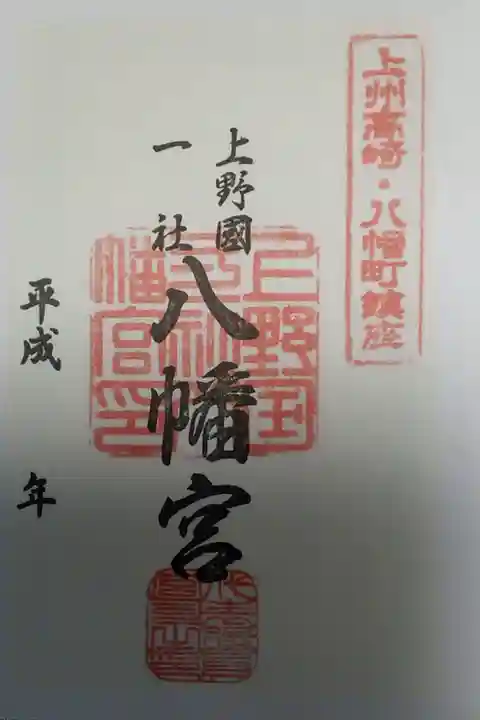 上州高崎・八幡町鎮座
上野國
一社
八幡宮
上野国
一社八
幡宮印
平成 年